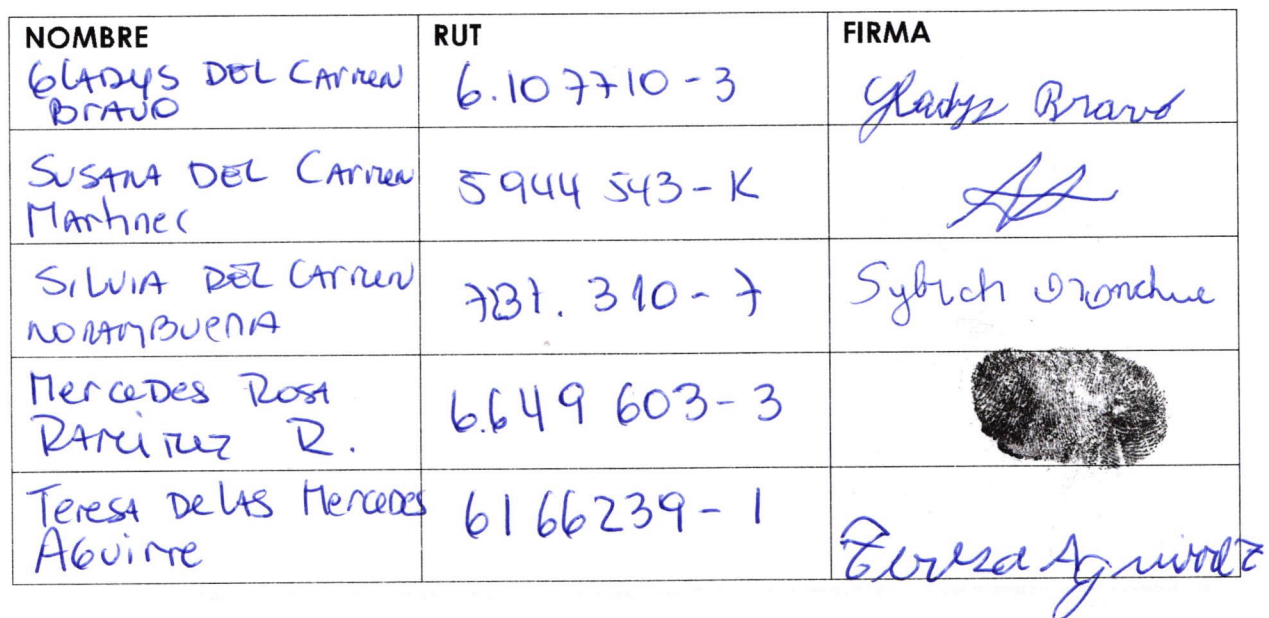 NOMBRE RUT FIRMA
GLADYS DEL CARMEN
BRAVO 6.107710-3 Gladys Bravo
SUSANA DEL CARMEN
Martinec 5944543-K
SILVIA DEL CARMEN
NORAMBUENA 310-7
MercEDes ROSA
RAMIREZ R. 6.649603-3
Teresa De LAS MerceDes
AGuirre 6166239-1 Teresa